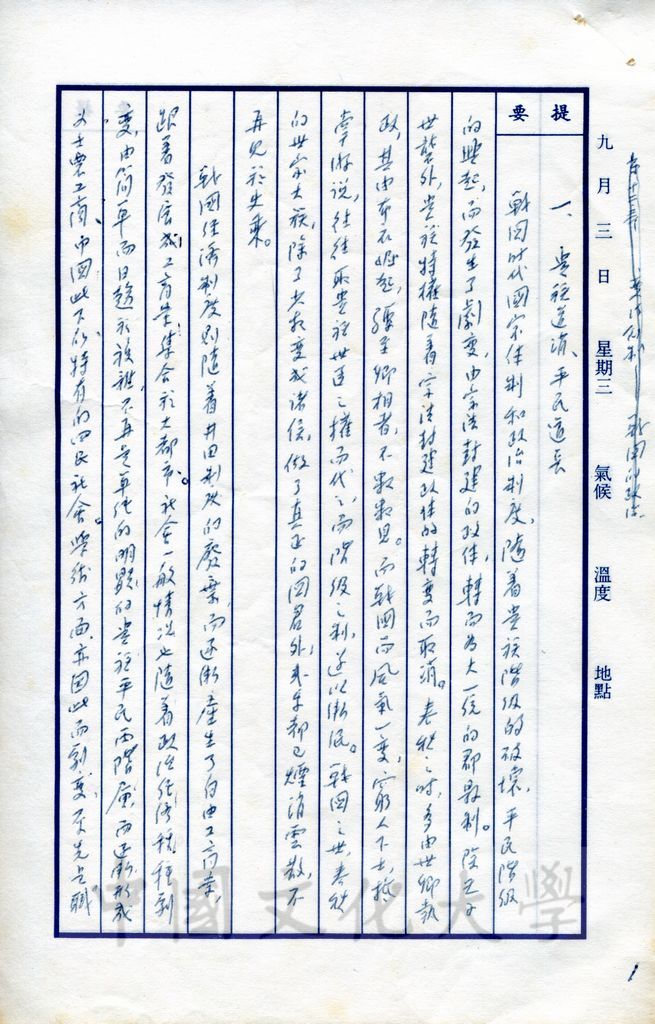 九月三日 星期三 氣候 溫度 地點
提要
一、貴族道消、平民道長
戰國時代國家体制和政治制度，隨着貴族階級的破壞，平民階級
的興起，而發生了劇變，由宗法封建的政体，轉而為大一統的郡縣制。除天子
世襲外，貴族特權隨着宗法封建政体的轉變而取消。春秋之時，多由世卿執
政，其由布衣崛起，躋至卿相者，不數數見。而戰國而風氣一變，窮人下士，抵
掌游說，往往取貴族世臣之權而代之，而階級之制，遂以漸泯。戰國之世，春秋
的世家大族，除了少數變成諸侯，做了真正的國君外，幾乎都已煙消雲散，不
再見於史乘。
戰國經濟制度則隨着井田制度的廢棄，而逐漸產生了自由工商業，
跟着發展成工商業集合的大都市。社會一般情况也隨着政治經濟種種劇
變，由簡單而日趨於複雜，不再是單純的明顯的貴族平民兩階層，而逐漸形成
為士農工商，中國此下的特有的四民社會。學術方面，亦因此而劇變，原先是職
1
中國文化大學